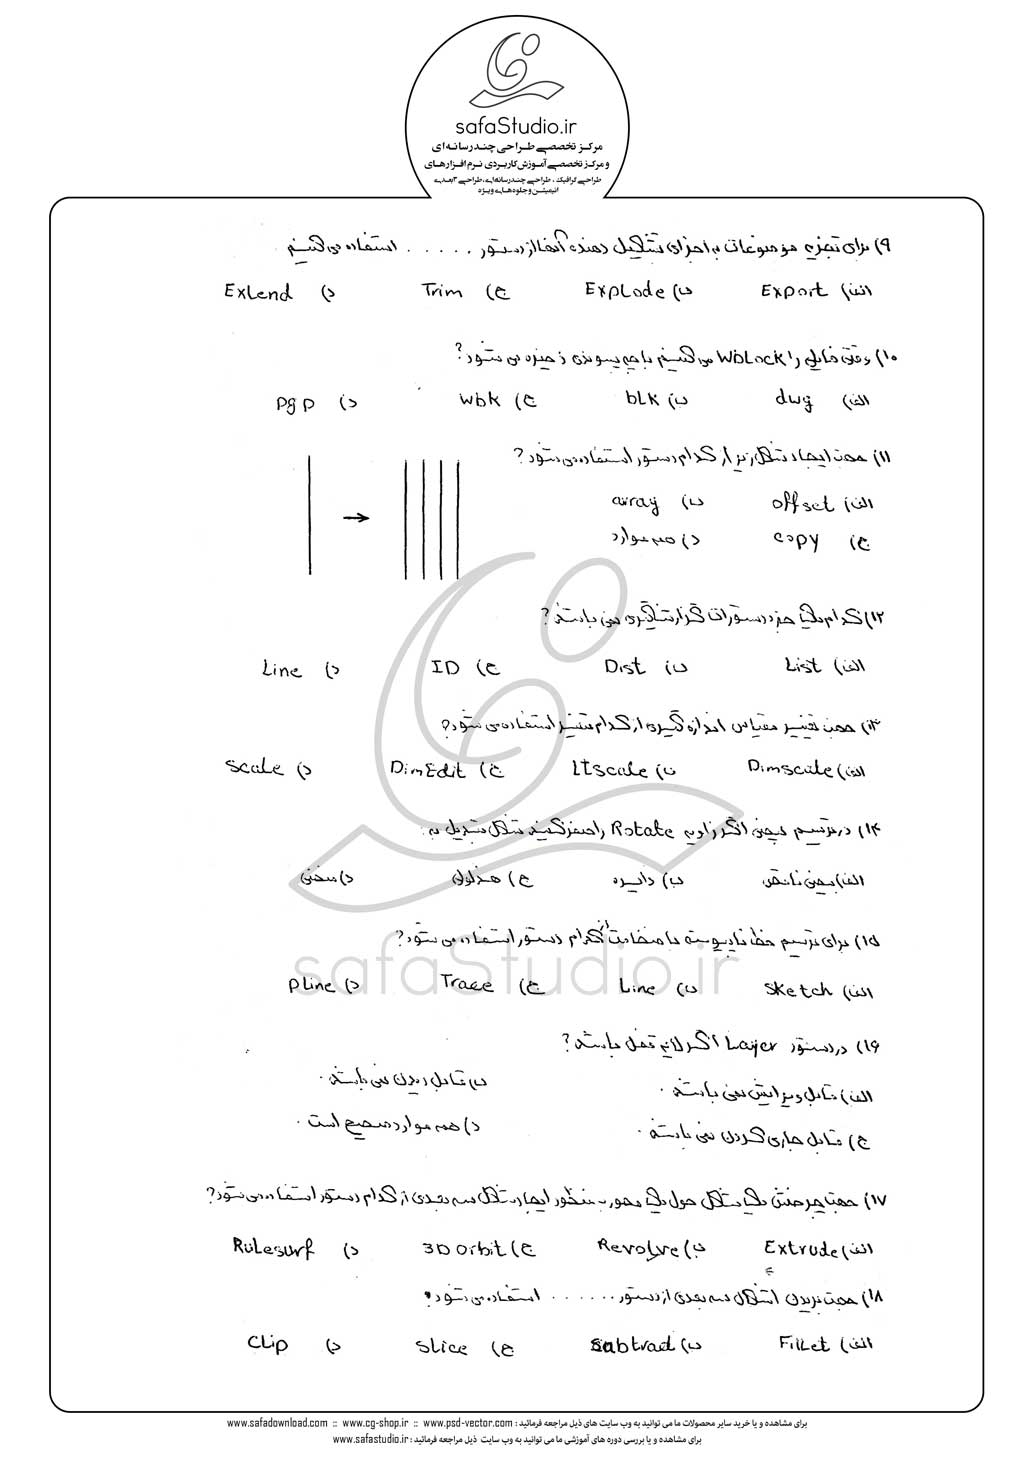 safaStudio.ir
مرکز تخصصی طراحی چندرسانه‌ای
و مرکز تخصصی آموزش کاربردی نرم افزارهای
طراحی گرافیک ، طراحی چندرسانه‌ای، طراحی ۳بعدی
انیمیشن و جلوه‌های ویژه
۹) برای تجزیه موضوعات به اجزای تشکیل دهنده آنها از دستور ...... استفاده می کنیم.
الف) Export ب) Explode ج) Trim د) Exlend
۱۰) وقتی فایلی را WbLock می کنیم با چه پسوندی ذخیره می شود؟
الف) dwg ب) bLK ج) wbk د) pgp
۱۱) جهت ایجاد شکل زیر از کدام دستور استفاده می شود؟
الف) offset ب) array
ج) copy د) همه موارد
۱۲) کدام یک جزء دستورات گزارشگیری نمی باشد؟
الف) List ب) Dist ج) ID د) Line
۱۳) جهت تغییر مقیاس اندازه گیری از کدام متغیر استفاده می شود؟
الف) Dimscale ب) LTscale ج) DimEdit د) scale
۱۴) در ترسیم بیضی اگر زاویه Rotate را صفر کنید شکل تبدیل به:
الف) بیضی ناقص ب) دایره ج) هذلولی د) منحنی
۱۵) برای ترسیم خط ناپیوسته با ضخامت از کدام دستور استفاده می شود؟
الف) sketch ب) Line ج) Trace د) pline
safaStudio.ir
۱۶) در دستور Layer اگر لایه قفل باشد؟
الف) قابل ویرایش نمی باشد. ب) قابل دیدن نمی باشد.
ج) قابل جاری کردن نمی باشد. د) همه موارد صحیح است.
۱۷) جهت چرخش یک شکل حول یک محور به منظور ایجاد شکل سه بعدی از کدام دستور استفاده می شود؟
الف) Extrude ب) Revolve ج) 3D Orbit د) Rulesurf
۱۸) جهت بریدن اشکال سه بعدی از دستور ....... استفاده می شود؟
الف) FiLLet ب) subtract ج) sLice د) CLip
برای مشاهده و یا خرید سایر محصولات ما می توانید به وب سایت های ذیل مراجعه فرمائید : www.safadownload.com :: www.cg-shop.ir :: www.psd-vector.com
برای مشاهده و یا بررسی دوره های آموزشی ما می توانید به وب سایت ذیل مراجعه فرمائید : www.safastudio.ir